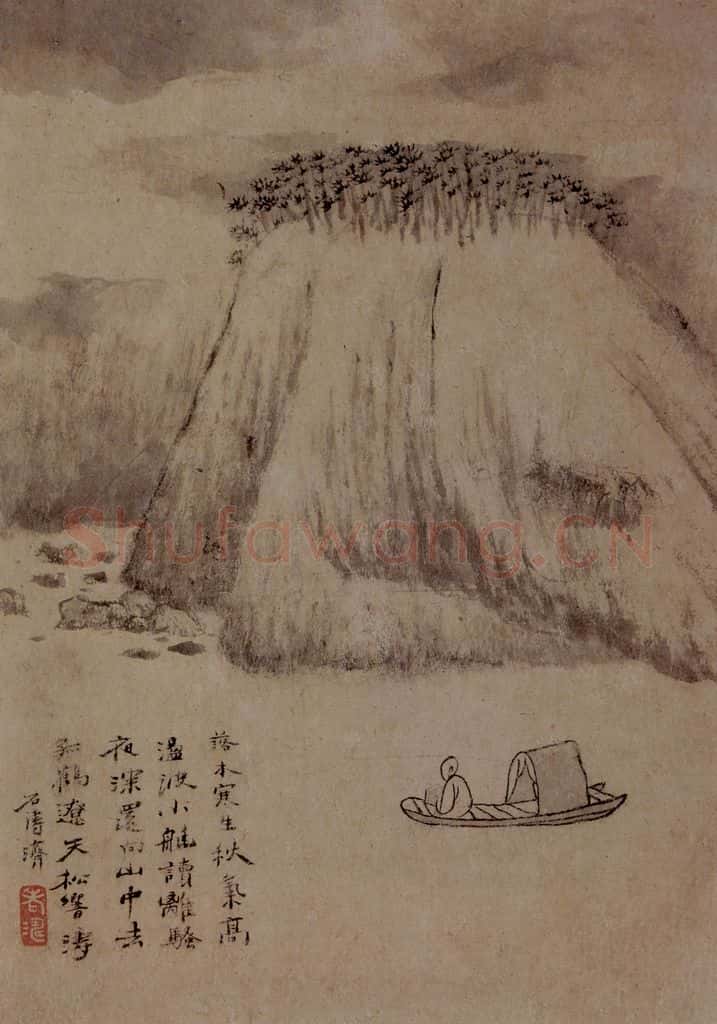 Shufawang.CN
落木寒生秋氣高
盪波小艇讀離騷
夜深還向山中去
孤鶴遼天松響濤
石濤濟